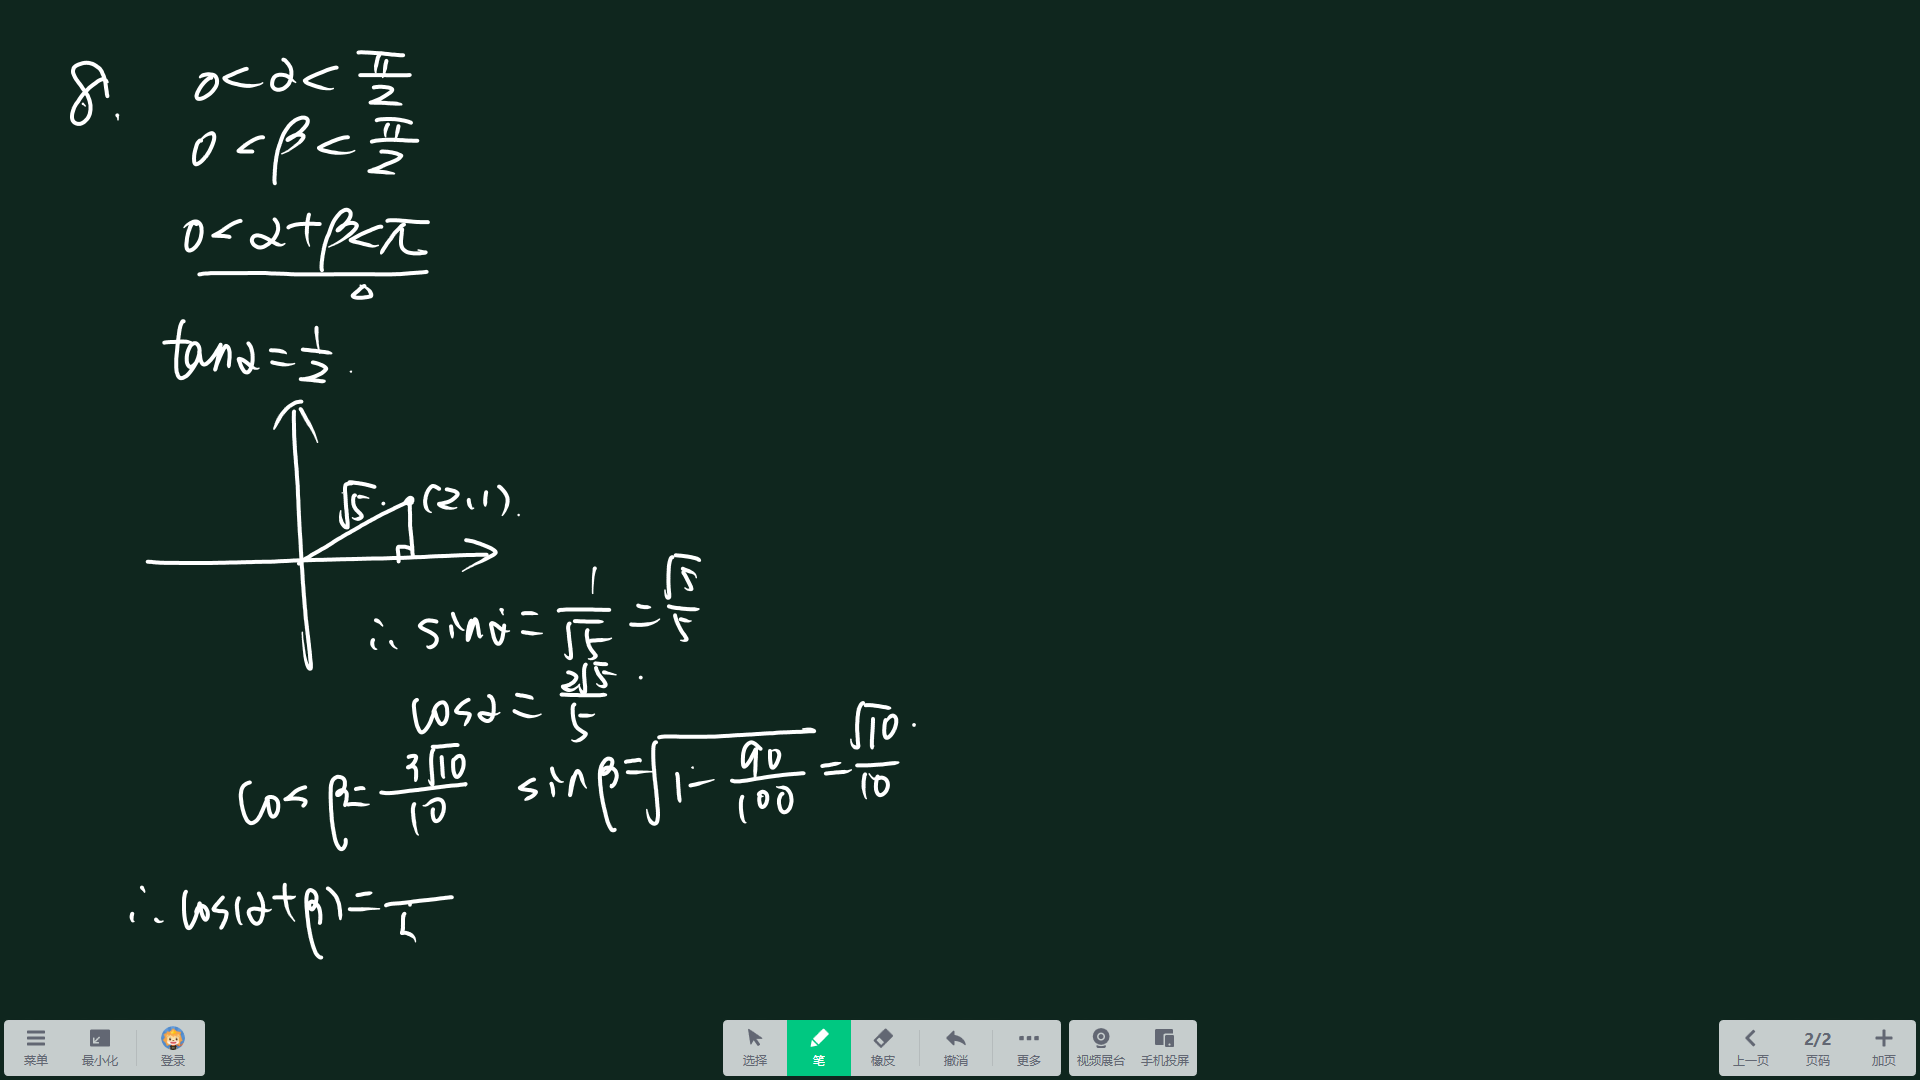 8. 0<α<π/2
0<β<π/2
0<α+β<π
tanα=1/2.
√5. (2,1).
∴ sinα=1/√5=√5/5
cosα=2√5/5.
cosβ=3√10/10 sinβ=√(1-90/100)=√10/10.
∴ cos(α+β)=
菜单 最小化 登录 选择 笔 橡皮 撤消 更多 视频展台 手机投屏 上一页 2/2 页码 加页